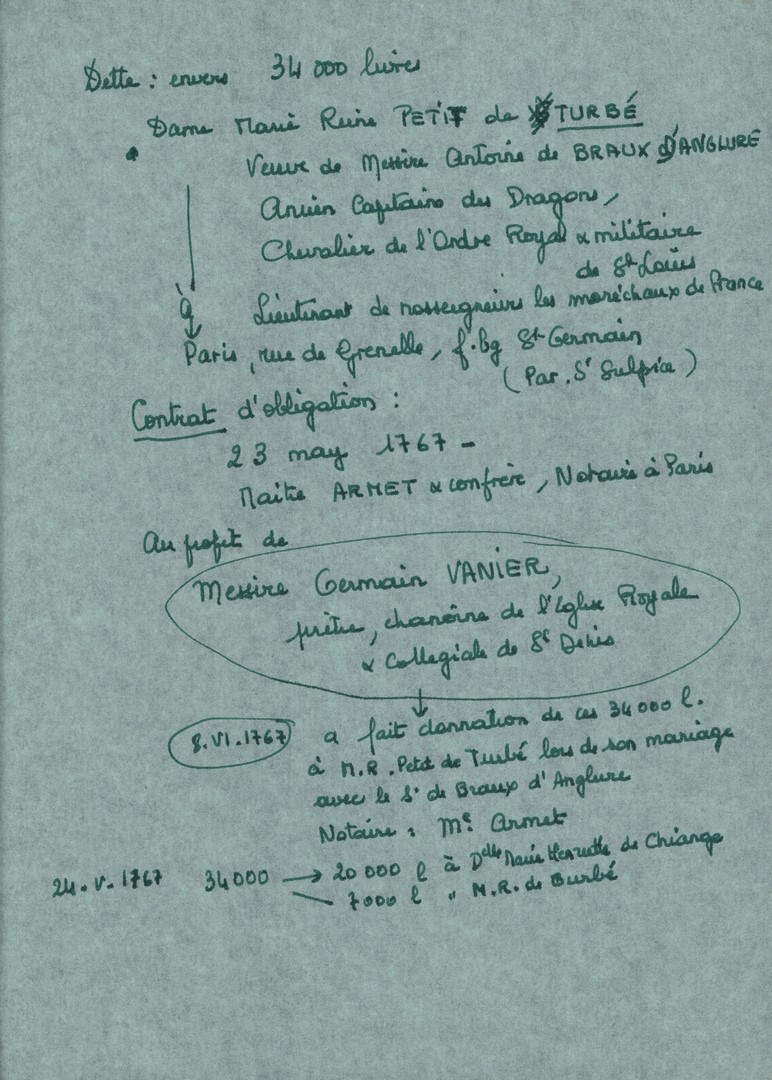 Dette : envers 34 000 livres
Dame Marie Reine PETIT de TURBÉ
Veuve de Messire Antoine de BRAUX D'ANGLURE
Ancien Capitaine des Dragons,
Chevalier de l'Ordre Royal & militaire
de St Louis
à Lieutenant de nosseigneurs les maréchaux de France
Paris, rue de Grenelle, f.bg St Germain
(Par. St Sulpice)
Contrat d'obligation :
23 may 1767 -
Maître ARMET & confrère, Notaire à Paris
Au profit de
Messire Germain VANIER,
prêtre, chanoine de l'Eglise Royale
& Collegiale de St Denis
8.VI.1767 a fait donnation de ces 34 000 l.
à M.R. Petit de Turbé lors de son mariage
avec le Sr de Braux d'Anglure
Notaire : Me Armet
24.V.1767 34000 → 20 000 l à Delle Marie Henriette de
7000 l " M.R. de Burbé